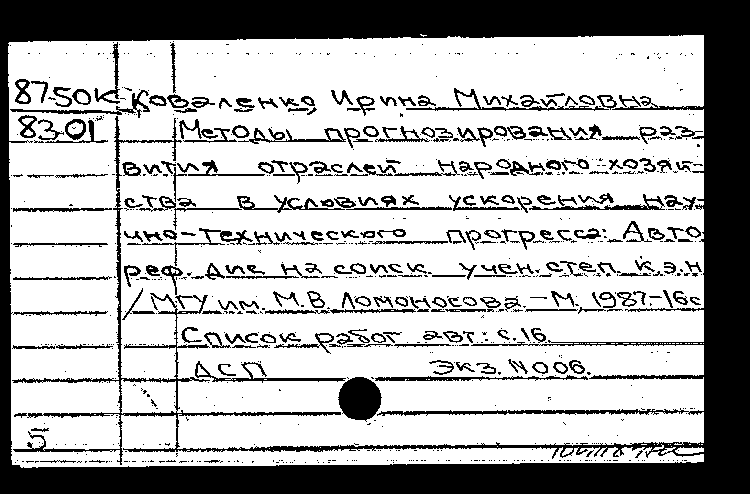 87-50К Коваленко, Ирина Михайловна
83-01 Методы прогнозирования раз-
вития отраслей народного хозяй-
ства в условиях ускорения нау-
чно-технического прогресса: Авто
реф. дис. на соиск. учен. степ. к.э.н
/ МГУ им. М.В. Ломоносова. - М., 1987.-16с
Список работ авт.: с.16.
ДСП Экз. N006.
5